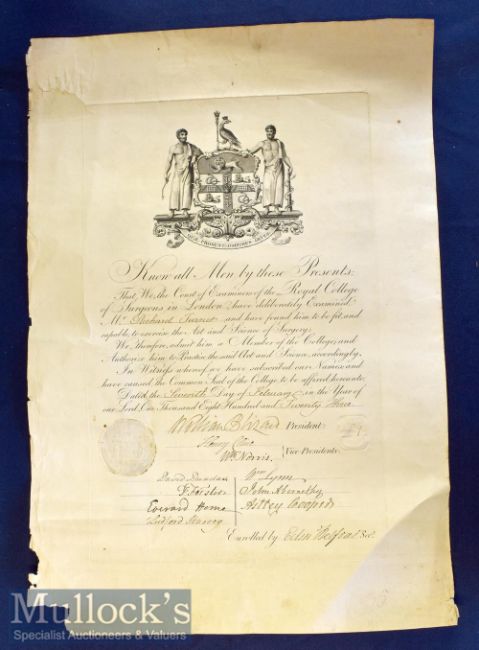 QUAE PROSUNT OMNIBUS ARTES
Know all Men by these Presents,
That We, the Court of Examiners of the Royal College
of Surgeons in London have deliberately Examined
Mr. Richard Turner and have found him to be fit and
capable to exercise the Art and Science of Surgery:
We therefore admit him a Member of the College and
Authorize him to Practise the said Art and Science accordingly.
In Witness whereof we have subscribed our Names and
have caused the Common Seal of the College to be affixed hereunto.
Dated the Seventh Day of February in the Year of
our Lord One Thousand Eight Hundred and Twenty three
William Blizard President.
Henry Cline
Wm. Norris. Vice Presidents.
David Dundas Wm Lynn
T. Forster John Abernethy
Everard Home Astley Cooper
Ludford Harvey
Enrolled by Edm. Belfour Sec.
MULLOCK'S
Specialist Auctioneers & Valuers